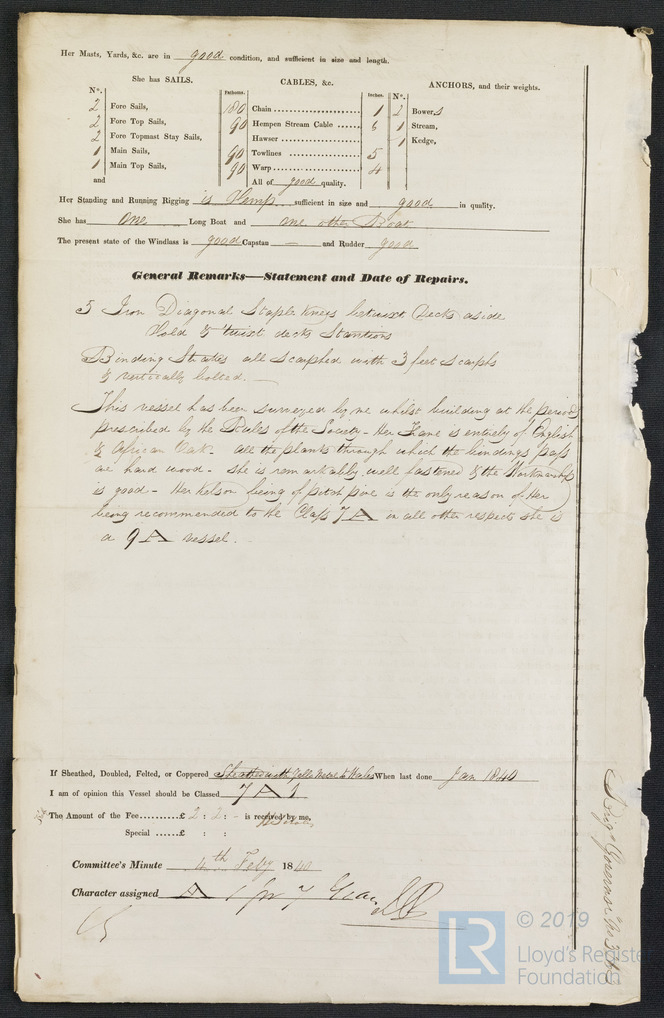 Her Masts, Yards, &c. are in good condition, and sufficient in size and length.
She has SAILS.
CABLES, &c.
ANCHORS, and their weights.
N°.
Fathoms.
Inches.
N°.
2 Fore Sails,
180 Chain 1
2 Bowers
2 Fore Top Sails,
90 Hempen Stream Cable 6
1 Stream,
2 Fore Topmast Stay Sails,
Hawser
1 Kedge,
1 Main Sails,
90 Towlines 5
1 Main Top Sails,
90 Warp 4
and
All of good quality.
Her Standing and Running Rigging is Hemp sufficient in size and good in quality.
She has one Long Boat and one other Boat
The present state of the Windlass is good Capstan — and Rudder good
General Remarks—Statement and Date of Repairs.
5 Iron Diagonal Staple Knees betwixt Decks aside
Hold & twixt decks Stantions
Binding Strakes all scarphed with 3 feet scarphs
& vertically bolted. —
This vessel has been surveyed by me whilst building at the periods
prescribed by the Rules of the Society - Her Frame is entirely of English
& African Oak - all the planks through which the bindings pass
are hard wood - she is remarkably well fastened & the Workmanship
is good - Her Kelson being of pitch pine is the only reason of Her
being recommended to the Class 7 A in all other respects she is
a 9 A vessel.
If Sheathed, Doubled, Felted, or Coppered Sheathed with Yellow to Wales When last done Jan 1840
I am of opinion this Vessel should be Classed 7 A 1
The Amount of the Fee £ 2 : 2 : - is received by me,
Special £ : :
Committee's Minute 4th Feby 1840
Character assigned A 1 for 7 Years
Brig Governor No
LR
© 2019
Lloyd's Register
Foundation